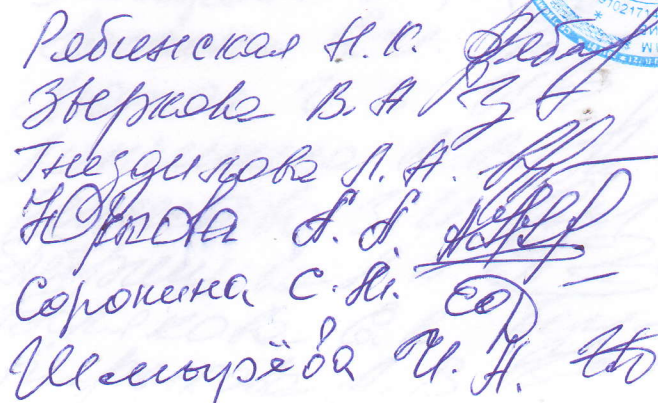 Рябинская Н. К.
Зверкова В. А
Гнездилова Л. А.
Юркова А. А.
Сорокина С. Н.
Шмырёва И. А.